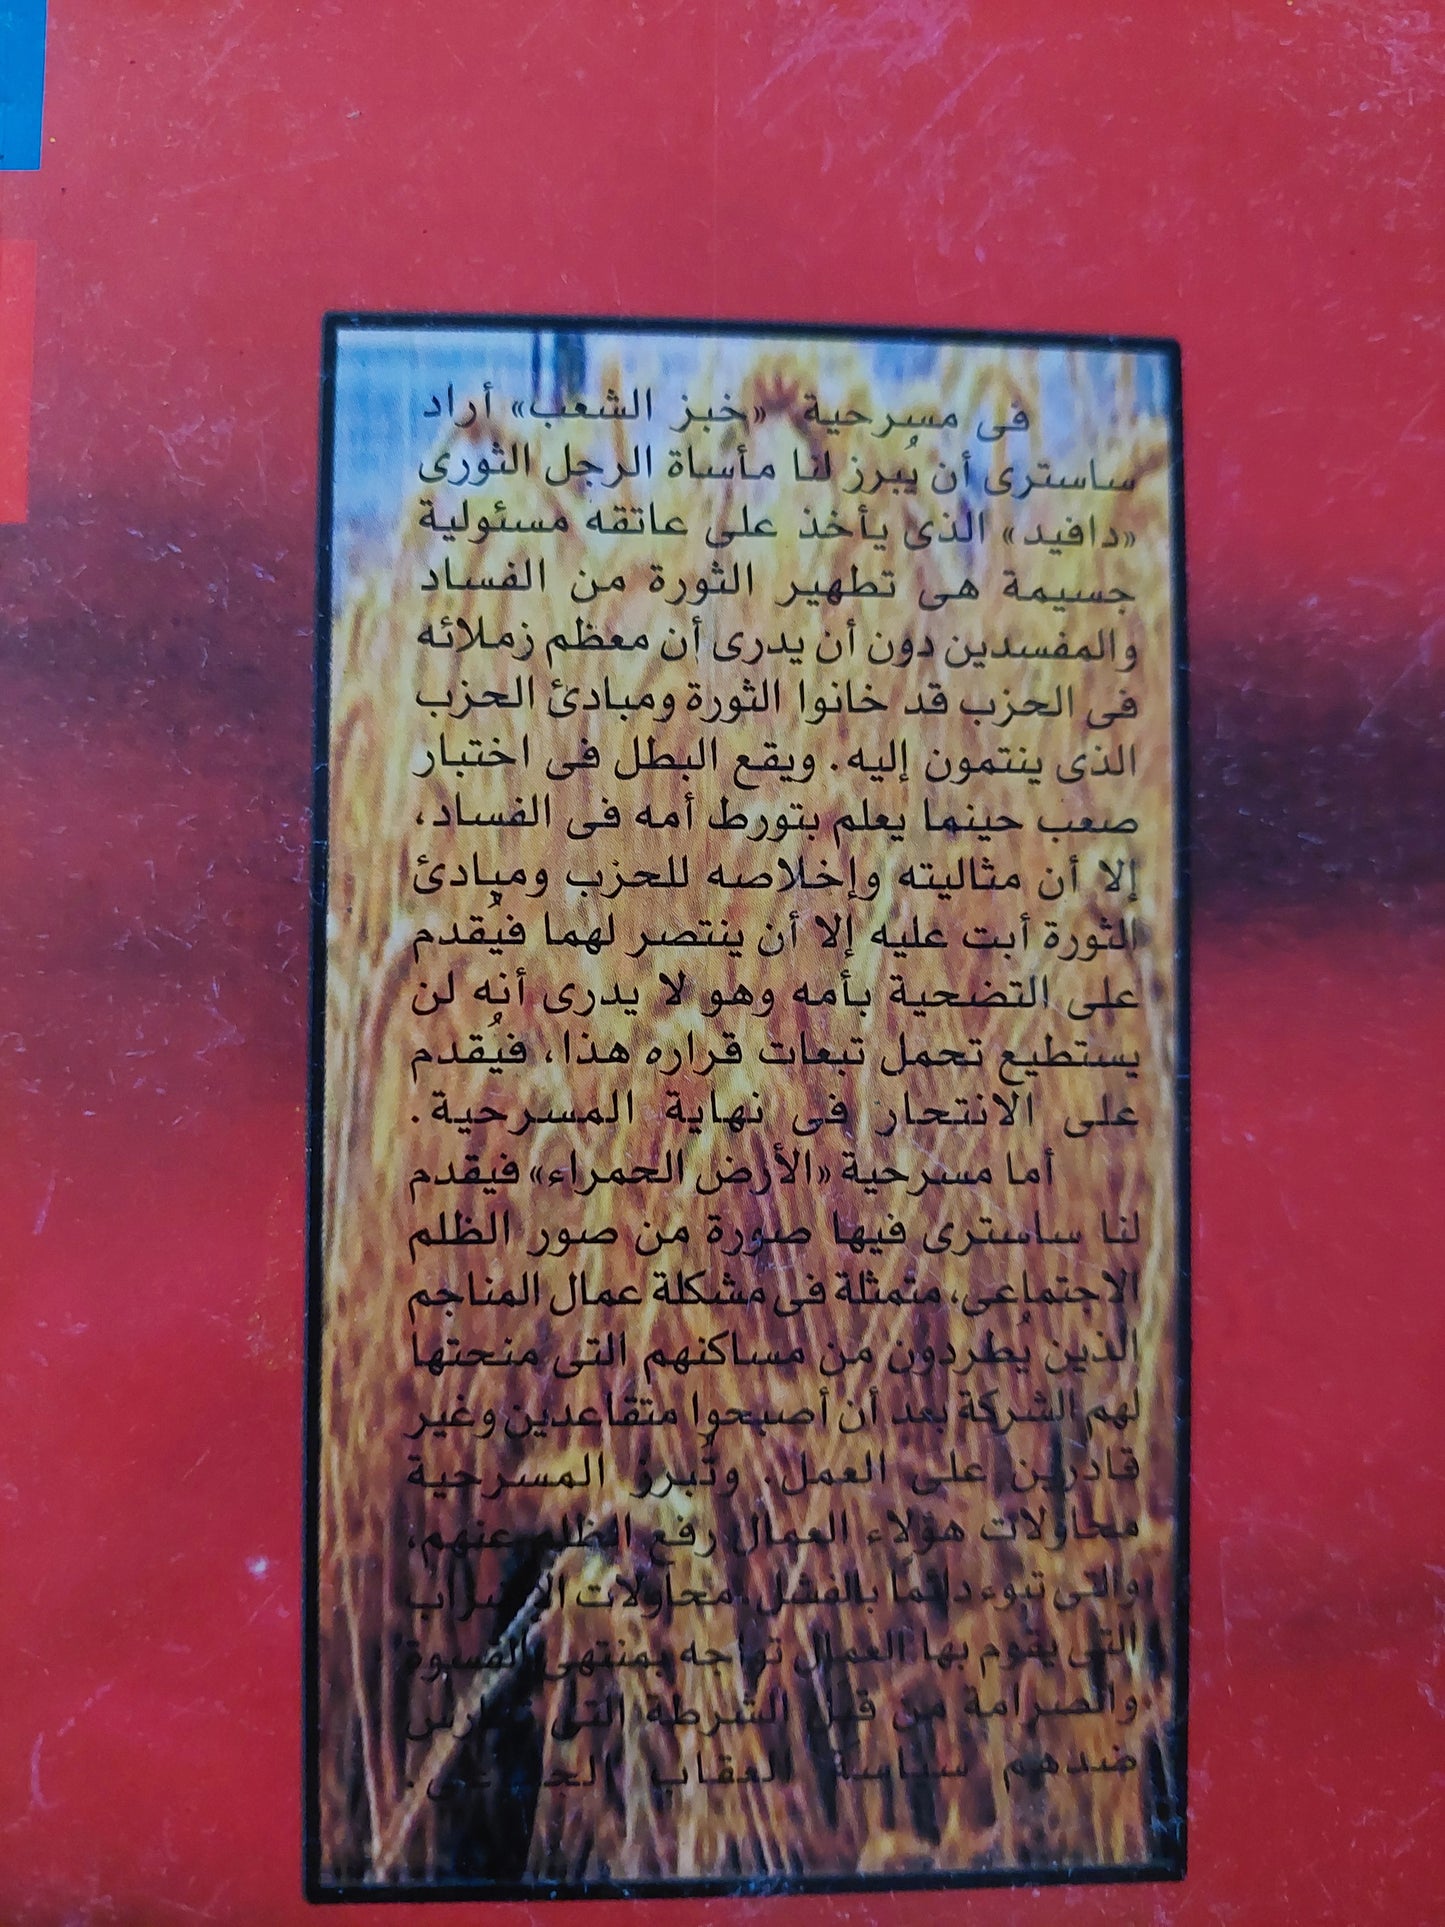 فى مسرحية «خبز الشعب» أراد
ساسترى أن يُبرز لنا مأساة الرجل الثورى
«دافيد» الذى يأخذ على عاتقه مسئولية
جسيمة هى تطهير الثورة من الفساد
والمفسدين دون أن يدرى أن معظم زملائه
فى الحزب قد خانوا الثورة ومبادئ الحزب
الذى ينتمون إليه. ويقع البطل فى اختبار
صعب حينما يعلم بتورط أمه فى الفساد،
إلا أن مثاليته وإخلاصه للحزب ومبادئ
الثورة أبت عليه إلا أن ينتصر لهما فيُقدم
على التضحية بأمه وهو لا يدرى أنه لن
يستطيع تحمل تبعات قراره هذا، فيُقدم
على الانتحار فى نهاية المسرحية.
أما مسرحية «الأرض الحمراء» فيقدم
لنا ساسترى فيها صورة من صور الظلم
الاجتماعى، متمثلة فى مشكلة عمال المناجم
الذين يُطردون من مساكنهم التى منحتها
لهم الشركة بعد أن أصبحوا متقاعدين وغير
قادرين على العمل. وتُبرز المسرحية
محاولات هؤلاء العمال رفع الظلم عنهم،
والتى تبوء دائماً بالفشل. محاولات الإضراب
التى يقوم بها العمال تواجه بمنتهى القسوة
والصرامة من قبل الشرطة التى تمارس
ضدهم سياسة العقاب الجماعى.